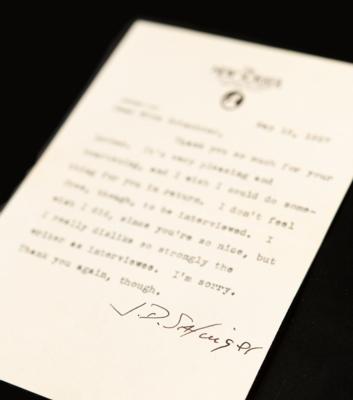 THE
NEW YORKER
May 19, 1957
Thank you so much for your
It's very pleasing and
and I wish I could do some-
thing for you in return. I don't feel
free, though, to be interviewed. I
wish I did, since you're so nice, but
I really dislike so strongly the
writer as interviewee. I'm sorry.
Thank you again, though.
J.D. Salinger